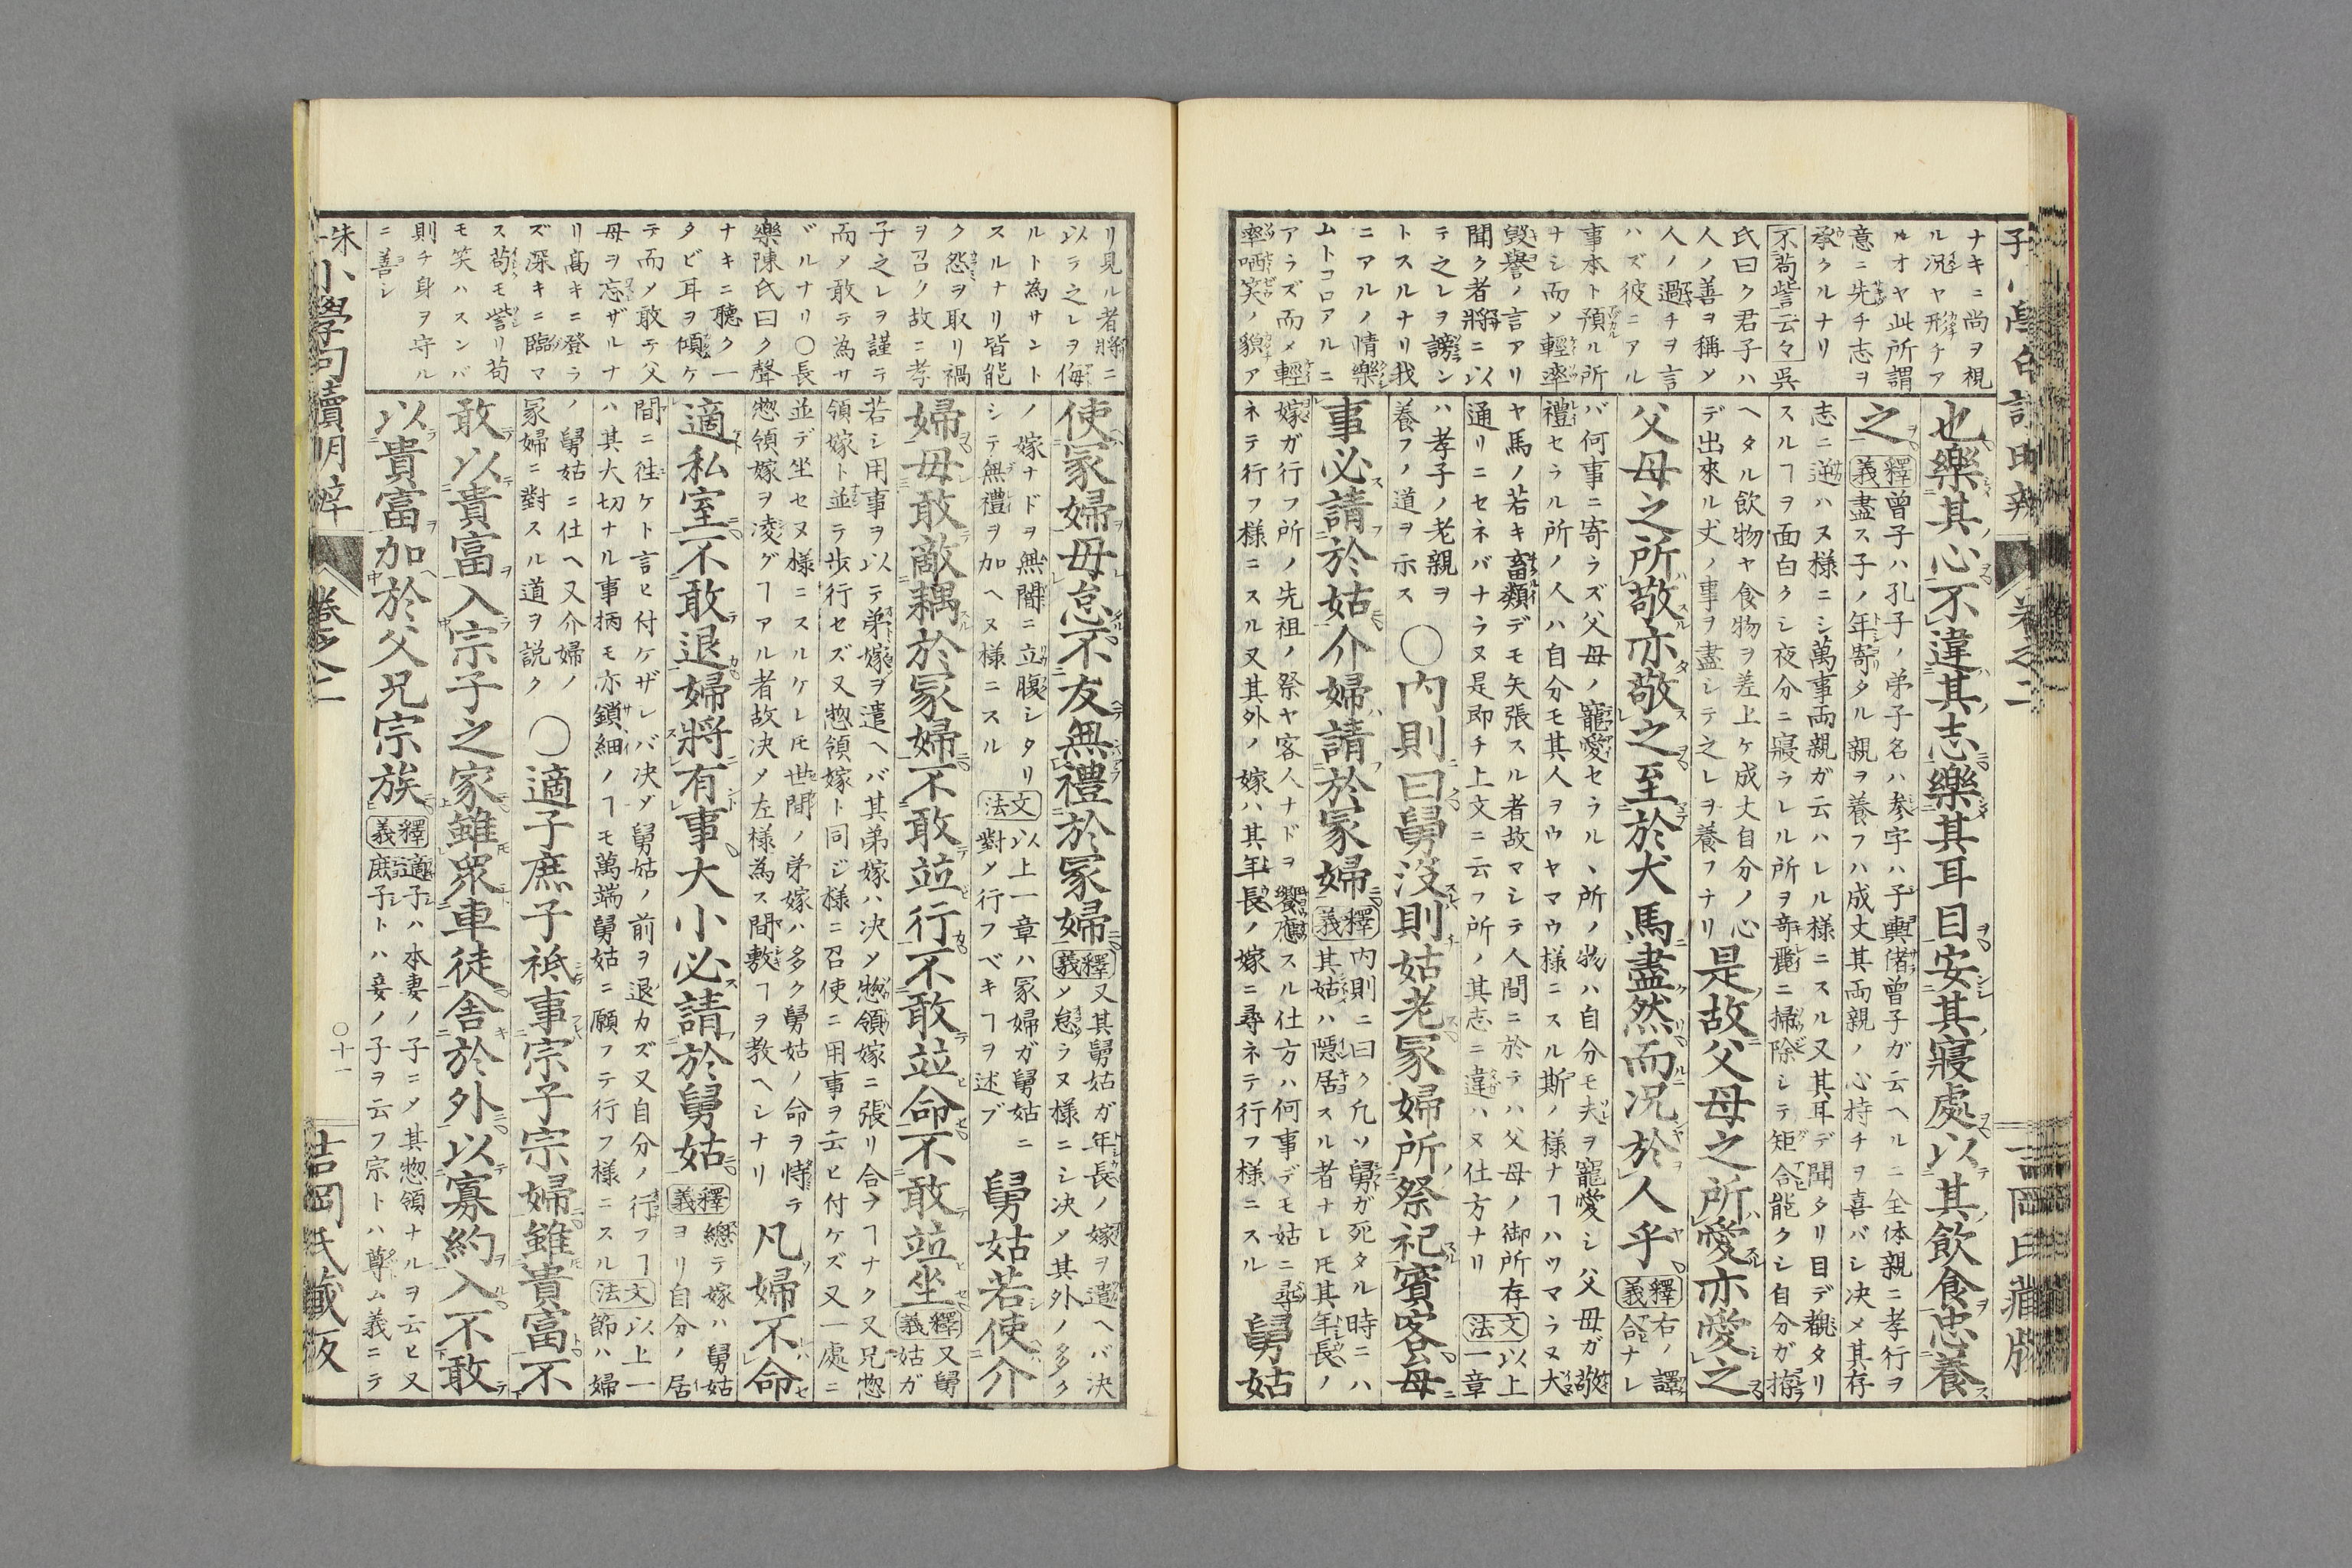 ナキニ尚ヲ視
ル況ヤ形チア
ルオヤ此所謂
意ニ先チ志ヲ
承クルナリ
不苟訾云々吳
氏曰ク君子ハ
人ノ善ヲ稱〆
人ノ過チヲ言
ハズ彼ニアル
事本ト預ル所
ナシ而〆輕率
毀譽ノ言アリ
聞ク者將ニ以
テ之レヲ謗ン
トスルナリ我
ニアルノ情樂
ムトコロアルニ
アラズ而〆輕
率哂笑ノ貌ア
也樂其心不違其志樂其耳目安其寢處以其飲食忠養
之
釋義
曾子ハ孔子ノ弟子名ハ参字ハ子輿偖曾子ガ云ヘルニ全体親ニ孝行ヲ
盡ス子ノ年寄タル親ヲ養フハ成丈其両親ノ心持チヲ喜バシ决〆其存
志ニ逆ハヌ様ニシ萬事両親ガ云ハレル様ニスル又其耳デ聞タリ目デ觀タリ
スルヿヲ面白クシ夜分ニ寢ラレル所ヲ竒麗ニ掃除シテ矩合能クシ自分ガ拵
ヘタル飲物ヤ食物ヲ差上ケ成丈自分ノ心
デ出來ル丈ノ事ヲ盡シテ之レヲ養フナリ
是故父母之所愛亦愛之
父母之所敬亦敬之至於犬馬盡然而况於人乎
釋義
右ノ譯
合ナレ
バ何事ニ寄ラズ父母ノ寵愛セラル、所ノ物ハ自分モ夫ヲ寵愛シ父母ガ敬
禮セラル所ノ人ハ自分モ其人ヲウヤマウ様ニスル斯ノ様ナヿハツマラヌ犬
ヤ馬ノ若キ畜類デモ矢張スル者故マシテ人間ニ於テハ父母ノ御所存
通リニセネバナラヌ是即チ上文ニ云フ所ノ其志ニ違ハヌ仕方ナリ
文法
以上
一章
ハ孝子ノ老親ヲ
養フノ道ヲ示ス
〇內則曰舅沒則姑老冡婦所祭祀賓客每
事必請於姑介婦請於冡婦
釋義
內則ニ曰ク凡ソ舅ガ死タル時ニハ
其姑ハ隱居スル者ナレ𪜈其年長ノ
嫁ガ行フ所ノ先祖ノ祭ヤ客人ナドヲ饗應スル仕方ハ何事デモ姑ニ尋
ネテ行フ様ニスル又其外ノ嫁ハ其年長ノ嫁ニ尋ネテ行フ様ニスル
舅姑
リ見ル者將ニ
以ラ之レヲ侮
ルト為サント
スルナリ皆能
ク怨ヲ取リ禍
ヲ召ク故ニ孝
子之レヲ謹テ
而〆敢テ為サ
ゞルナリ〇長
樂陳氏曰ク聲
ナキニ聽ク一
タビ耳ヲ傾ケ
テ而〆敢テ父
母ヲ忘ザルナ
リ高キニ登ラ
ズ深キニ臨マ
ス苟モ訾リ苟
モ笑ハスンバ
則チ身ヲ守ル
ニ善シ
使冡婦毋怠不友無禮於冡婦
釋義
又其舅姑ガ年長ノ嫁ヲ遣ヘバ决
〆怠ラヌ様ニシ决〆其外ノ多ク
ノ嫁ナドヲ無闇ニ立腹シタリ
シテ無禮ヲ加ヘヌ様ニスル
文法
以上一章ハ冡婦ガ舅姑ニ
對〆行フベキヿヲ述ブ
舅姑若使介
婦毋敢敵耦於冡婦不敢竝行不敢竝命不敢竝坐
釋義
又舅
姑ガ
若シ用事ヲ以テ弟嫁ヲ遣ヘバ其弟嫁ハ决〆惣領嫁ニ張リ合フヿナク又兄惣
領嫁ト並ラ歩行セズ又惣領嫁ト同ジ様ニ召使ニ用事ヲ云ヒ付ケズ又一處ニ
並デ坐セヌ様ニスルケレ𪜈世間ノ弟嫁ハ多ク舅姑ノ命ヲ恃テ
惣領嫁ヲ凌グヿアル者故决〆左様為ス間敷ヿヲ教ヘシナリ
凡婦不命
適私室不敢退婦將有事大小必請於舅姑
釋義
總テ嫁ハ舅姑
ヨリ自分ノ居
間ニ徃ケト言ヒ付ケザレバ决〆舅姑ノ前ヲ退カズ又自分ノ行フヿ
ハ其大切ナル事柄モ亦鎖細ノヿモ萬端舅姑ニ願フテ行フ様ニスル
文法
以上一
節ハ婦
ノ舅姑ニ仕ヘ又介婦ノ
冡婦ニ對スル道ヲ説ク
〇適子庶子祗事宗子宗婦雖貴富不
敢以貴富入宗子之家雖衆車徒舍於外以寡約入不敢
以貴富加於父兄宗族
釋義
適子ハ本妻ノ子ニ〆其惣領ナルヲ云ヒ又
庶子トハ妾ノ子ヲ云フ宗トハ尊ム義ニテ
朱子小學句讀明辨
卷之二
〇十一
吉岡氏藏版